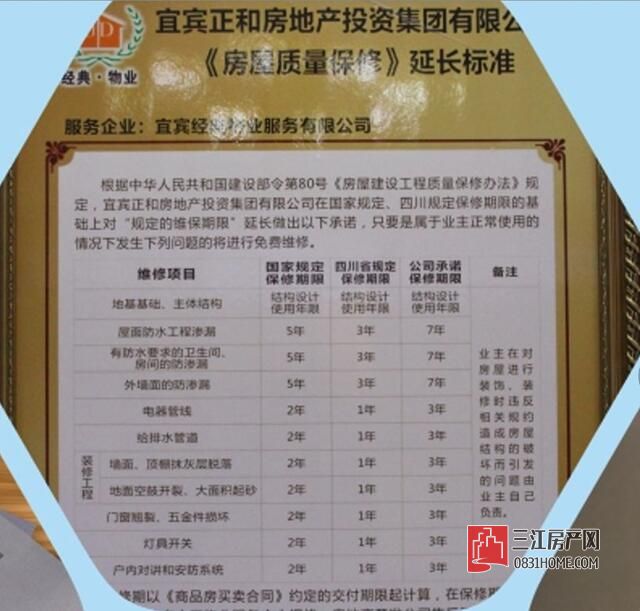 宜宾正和房地产投资集团有限公
《房屋质量保修》延长标准
经典·物业
服务企业：宜宾经典物业服务有限公司
根据中华人民共和国建设部令第80号《房屋建设工程质量保修办法》规
定，宜宾正和房地产投资集团有限公司在国家规定、四川规定保修期限的基
础上对“规定的维保期限”延长做出以下承诺，只要是属于业主正常使用的
情况下发生下列问题的将进行免费维修。
维修项目 国家规定保修期限 四川省规定保修期限 公司承诺保修期限 备注
地基基础、主体结构 结构设计使用年限 结构设计使用年限 结构设计使用年限
屋面防水工程渗漏 5年 3年 7年
有防水要求的卫生间、房间的防渗漏 5年 3年 7年
外墙面的防渗漏 5年 3年 7年
电器管线 2年 1年 3年
给排水管道 2年 1年 3年
装修工程
墙面、顶棚抹灰层脱落 2年 1年 3年
地面空鼓开裂、大面积起砂 2年 1年 3年
门窗翘裂、五金件损坏 2年 1年 3年
灯具开关 2年 1年 3年
户内对讲和安防系统 2年 1年 3年
业主在对
房屋进行
装饰、装
修时违反
相关规约
造成房屋
结构的破
坏而引发
的问题由
业主自己
负责。
修期以《商品房买卖合同》约定的交付期限起计算，在保修期
三江房产网
0831HOME.COM